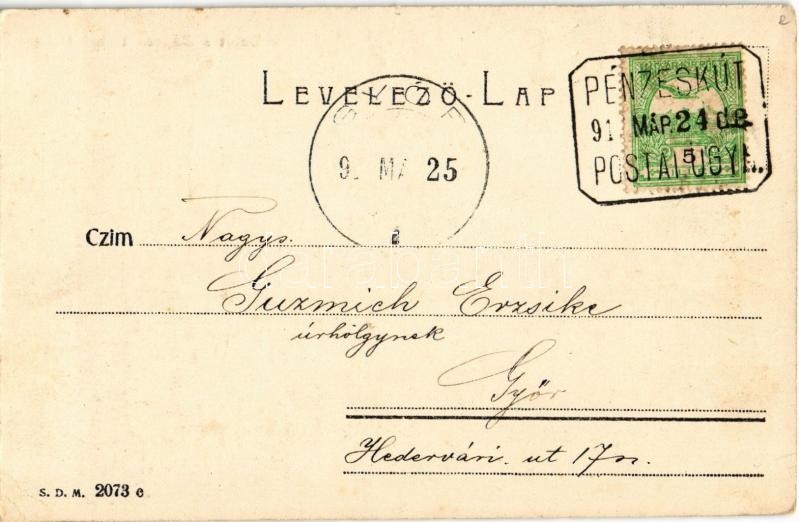 LEVELEZŐ-LAP
PÉNZESKÚT
91 MÁR. 24 de.
5
POSTAI ÜGYN.
GYŐR
9 MÁ 25
Czim Nagys.
Guzmich Erzsike
úrhölgynek
Győr
Hedervári. ut 17 sz.
S. D. M. 2073 e
darabanth